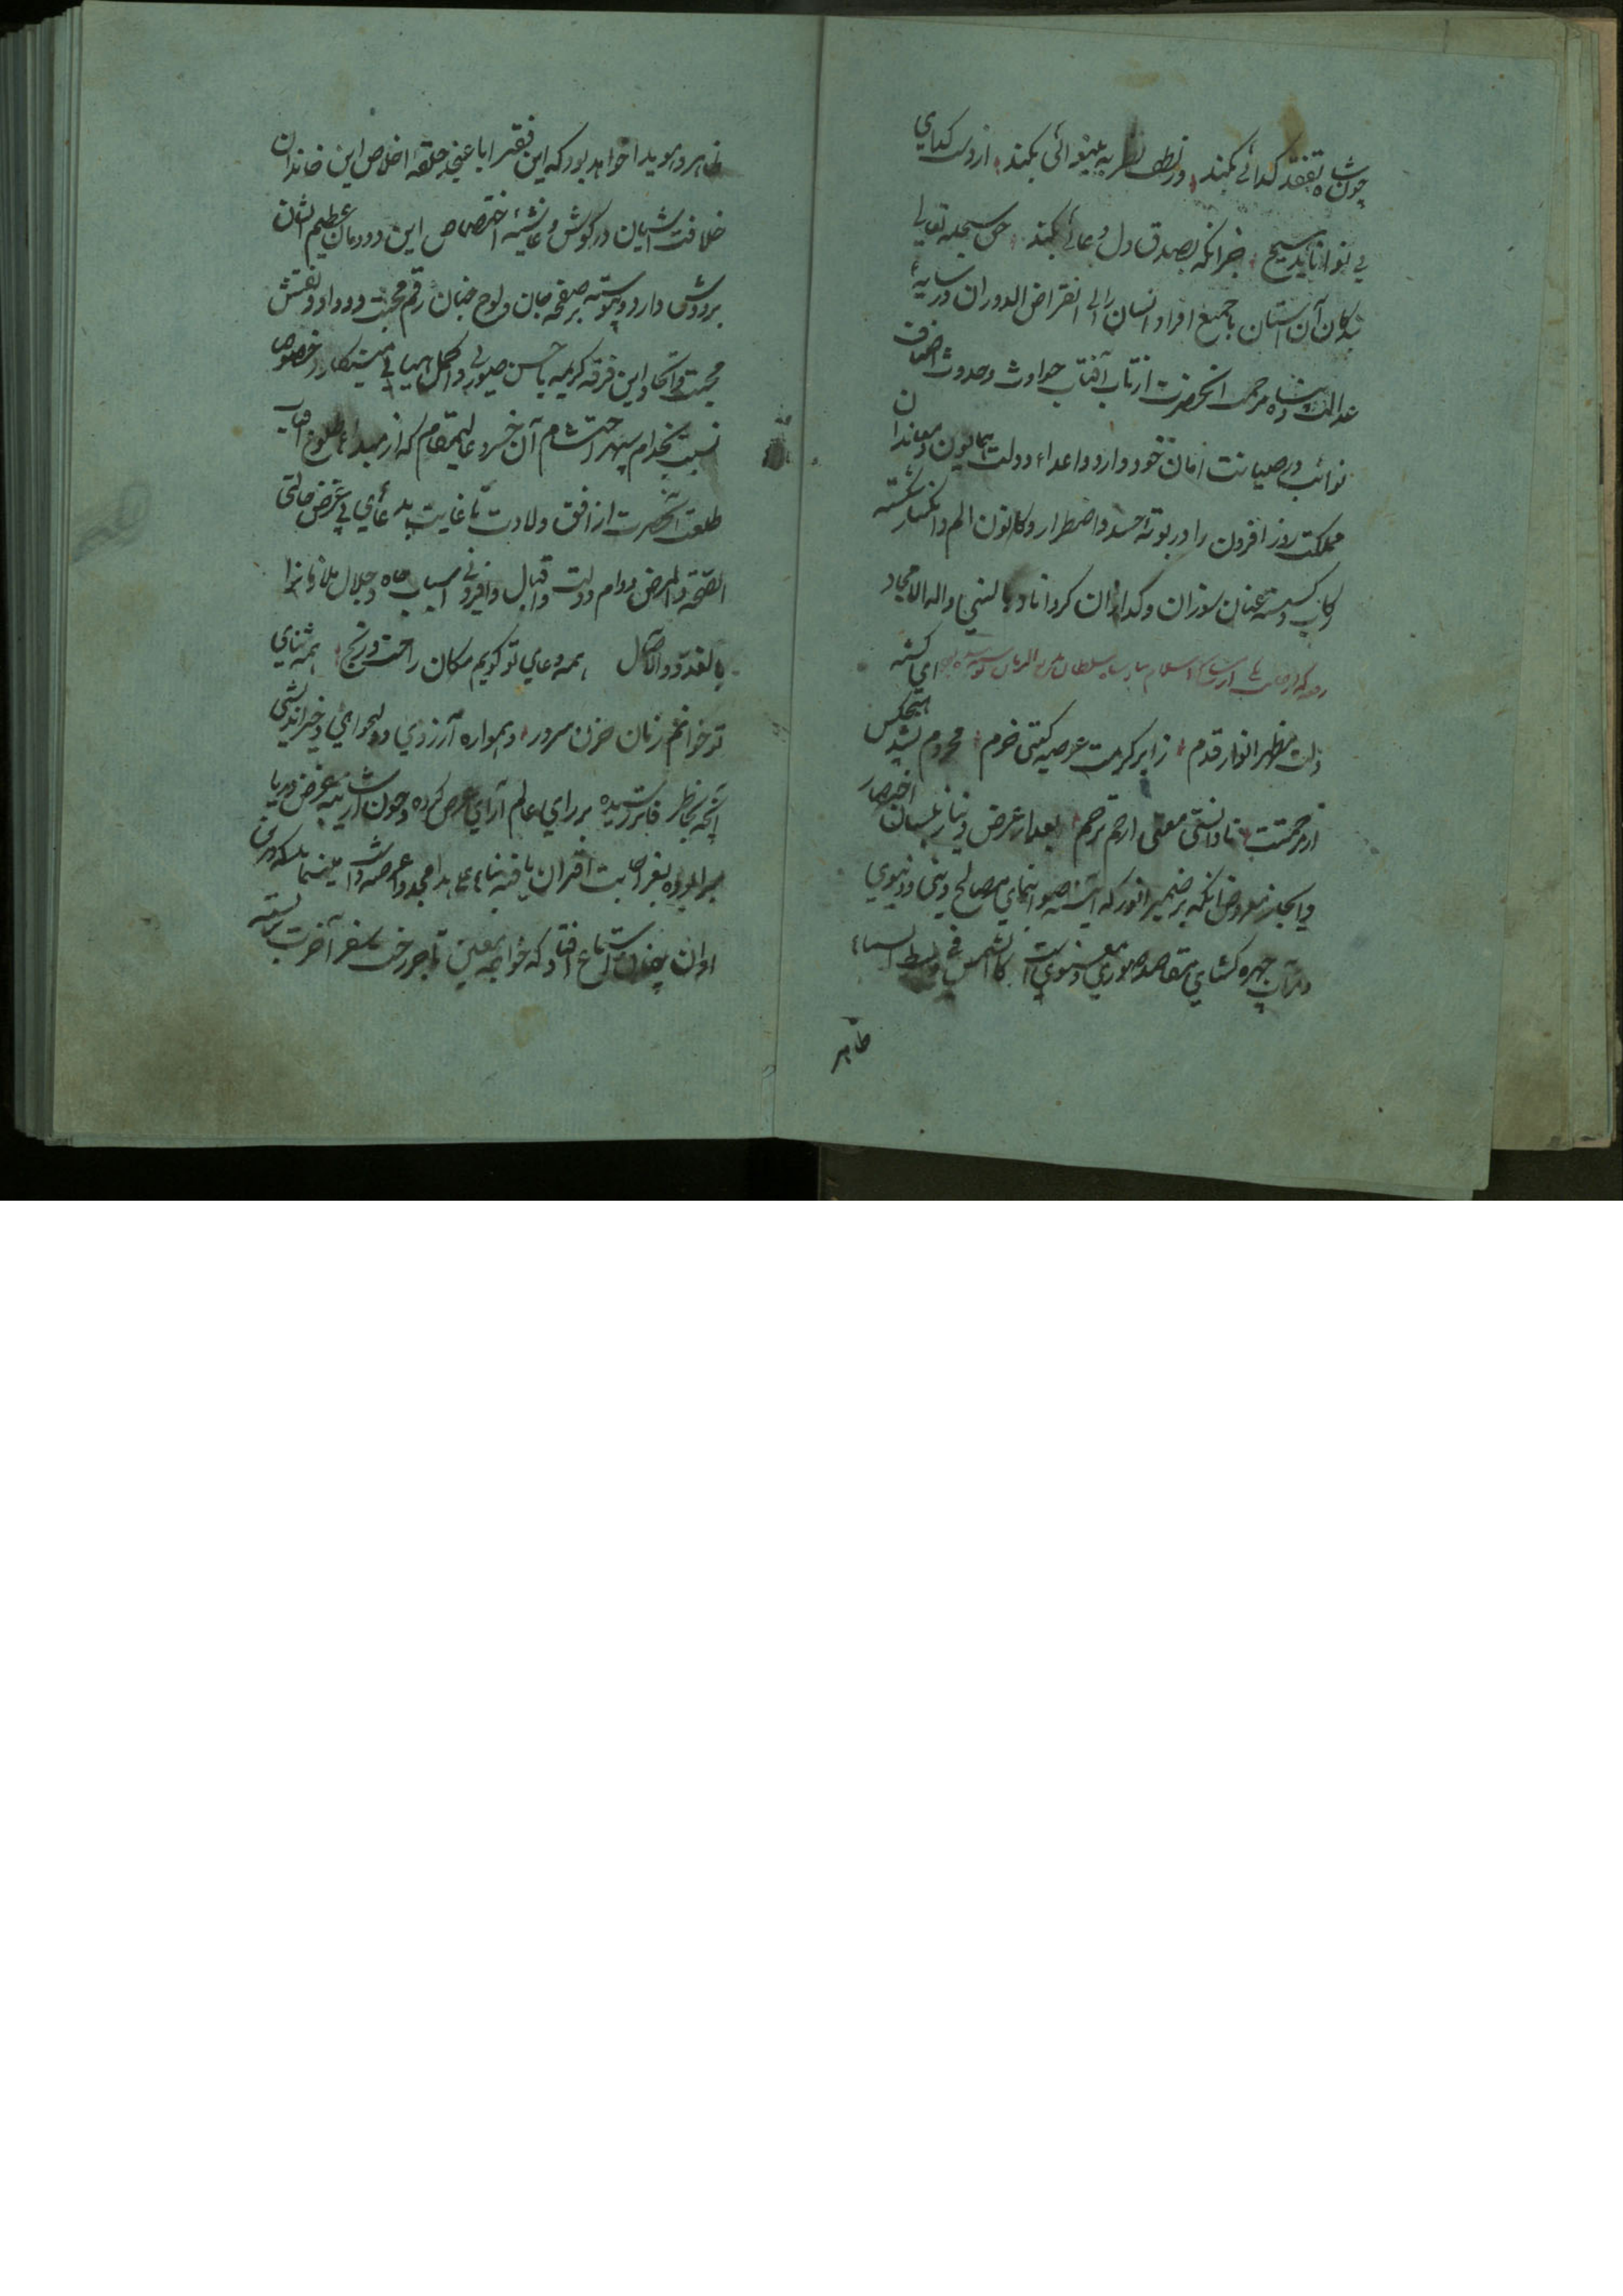 چون شاه تفقد کدائے بکند ور لطف نظر به بینوائی بکند از دست کدای
بی نوا ناید هیچ جز آنکه بصدق دل دعائے بکند حق سبحانه تعالی
بندکان آن آستان با جمیع افراد انسان را الی انقراض الدوران در سایهٔ
عدالت شاه مرحمت آنحضرت از تاب آفتاب حوادث وحدوث اصناف
نوائب در صیانت امان خود دارد واعداء دولت همایون ومعاندان
مملکت روز افزون را در بوته حسد واضطرار وکانون الم وانکسار شکسته
رکاب وکسسته عنان سوزان وکدازان کرداناد بالنبی واله الامجاد
ای کشته
ذات مظهر انوار قدم ز ابر کرمت عرصه کیتی خرم محروم نشد هیچکس
از مرحمتت نا دانستی معنی ارحم ترحم بعد از عرض نیاز بلسان اختصار
وایجاز معروض آنکه بر ضمیر انور که آئینه صور نمای مصالح دینی ودنیوی
ومرآت چهره کشای مقاصد صوری ومعنویست کالشمس فی وسط السماء
ظاهر
ظاهر وهویدا خواهد بود که این فقیر ابا عن جد حلقه اخلاص این خاندان
خلافت آشیان در کوش وغاشیهٔ اختصاص این دودمان عظیم الشان
بر دوش دارد وپیوسته بر صفحه جان ولوح جنان رقم محبت ووداد ونقش
محبت واتحاد این فرقه کریمه باحسن صورتی واکمل هیاتی می نکارد خصوص
نسبت بخدام سپهر احتشام آن خسرو عالیمقام که از مبداء طلوع آفتاب
طلعت آنحضرت از افق ولادت تا غایت بدعای بی غرض حالتی
الصحة والمرض دوام دولت واقبال وافزونی اسباب جاه وجلال ملازمانرا
بالغدو والآصال همه دعای تو کویم مکان راحت ورنج همه ثنای
تو خوانم زمان حزن وسرور وهمواره آرزوی دولتخواهی وخیراندیشی
آنچه بخاطر فاتر رسیده بر رای عالم آرای عرض کرده وچون از شائبه غرض وریا
مبرا بوده بعز اجابت اقتران یافته بناء علی هذا مجددا عرضه داشت مینماید که درین
اوان چنان استماع افتاد که خواجه معین تاجر رخت سفر آخرت بسته